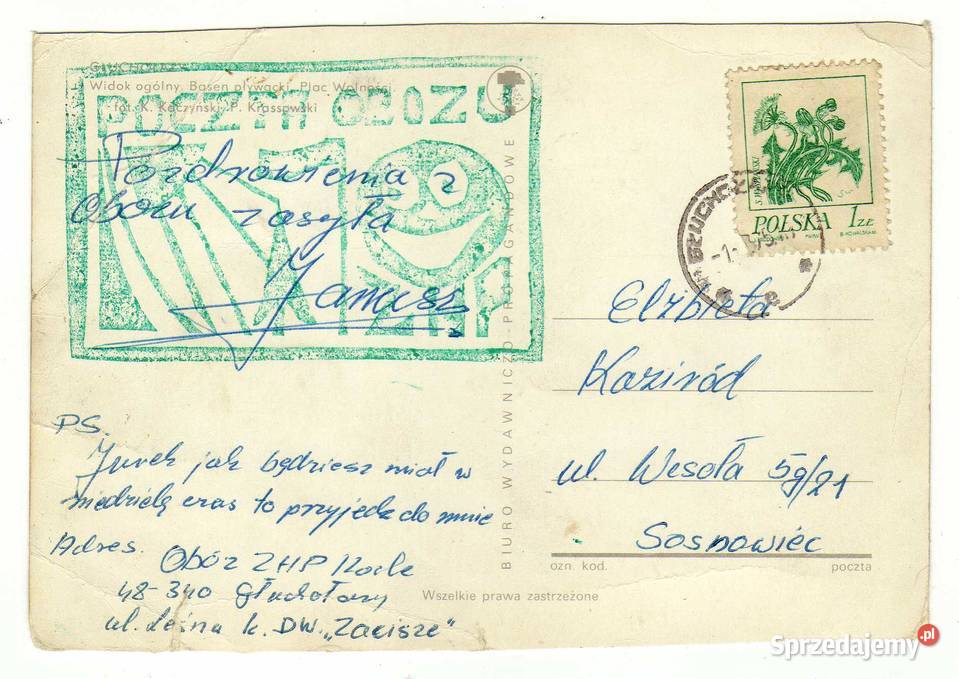 GŁUCHOŁAZY
Widok ogólny, Basen pływacki, Plac Wolności
fot. K. Kaczyński, P. Krassowski
POCZTA OBOZU
Pozdrowienia z
Obozu zasyła
Janusz
ZHP
PS.
Jurek jak będziesz miał w
niedzielę czas to przyjedź do mnie
Adres. Obóz ZHP
48-340 Głuchołazy
ul. Leśna k. DW. „Zacisze"
BIURO WYDAWNICZO-PROPAGANDOWE
POLSKA 1 ZŁ
GŁUCHOŁAZY
Elżbieta
Kaziród
ul. Wesoła 59/21
Sosnowiec
ozn. kod. poczta
Wszelkie prawa zastrzeżone
Sprzedajemy.pl